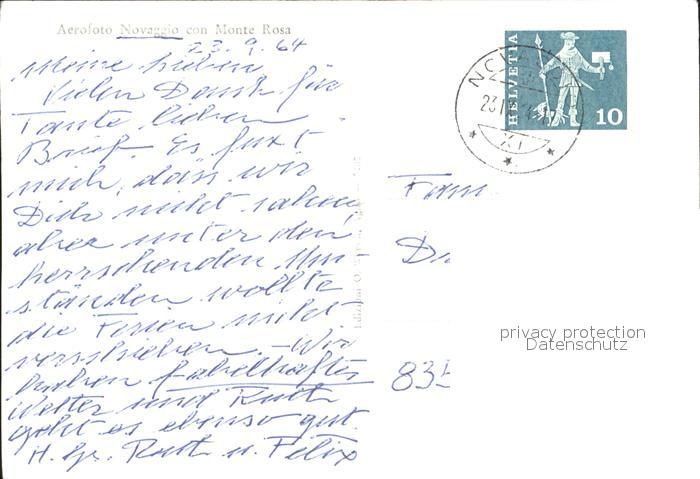 Aerofoto Novaggio con Monte Rosa
23. 9. 64
Meine Lieben
Vielen Dank für
Tante lieben
Brief. Es
mich, dass wir
Dich nicht sahen,
aber unter den
herrschenden Um-
ständen wollte
die Ferien nicht
verschieben. – Wir
haben fabelhaftes
Wetter und Ruth
geht es ebenso gut.
H. Gr. Ruth u. Felix
HELVETIA
10
23
XI
Fam.
Dr
835
privacy protection
Datenschutz